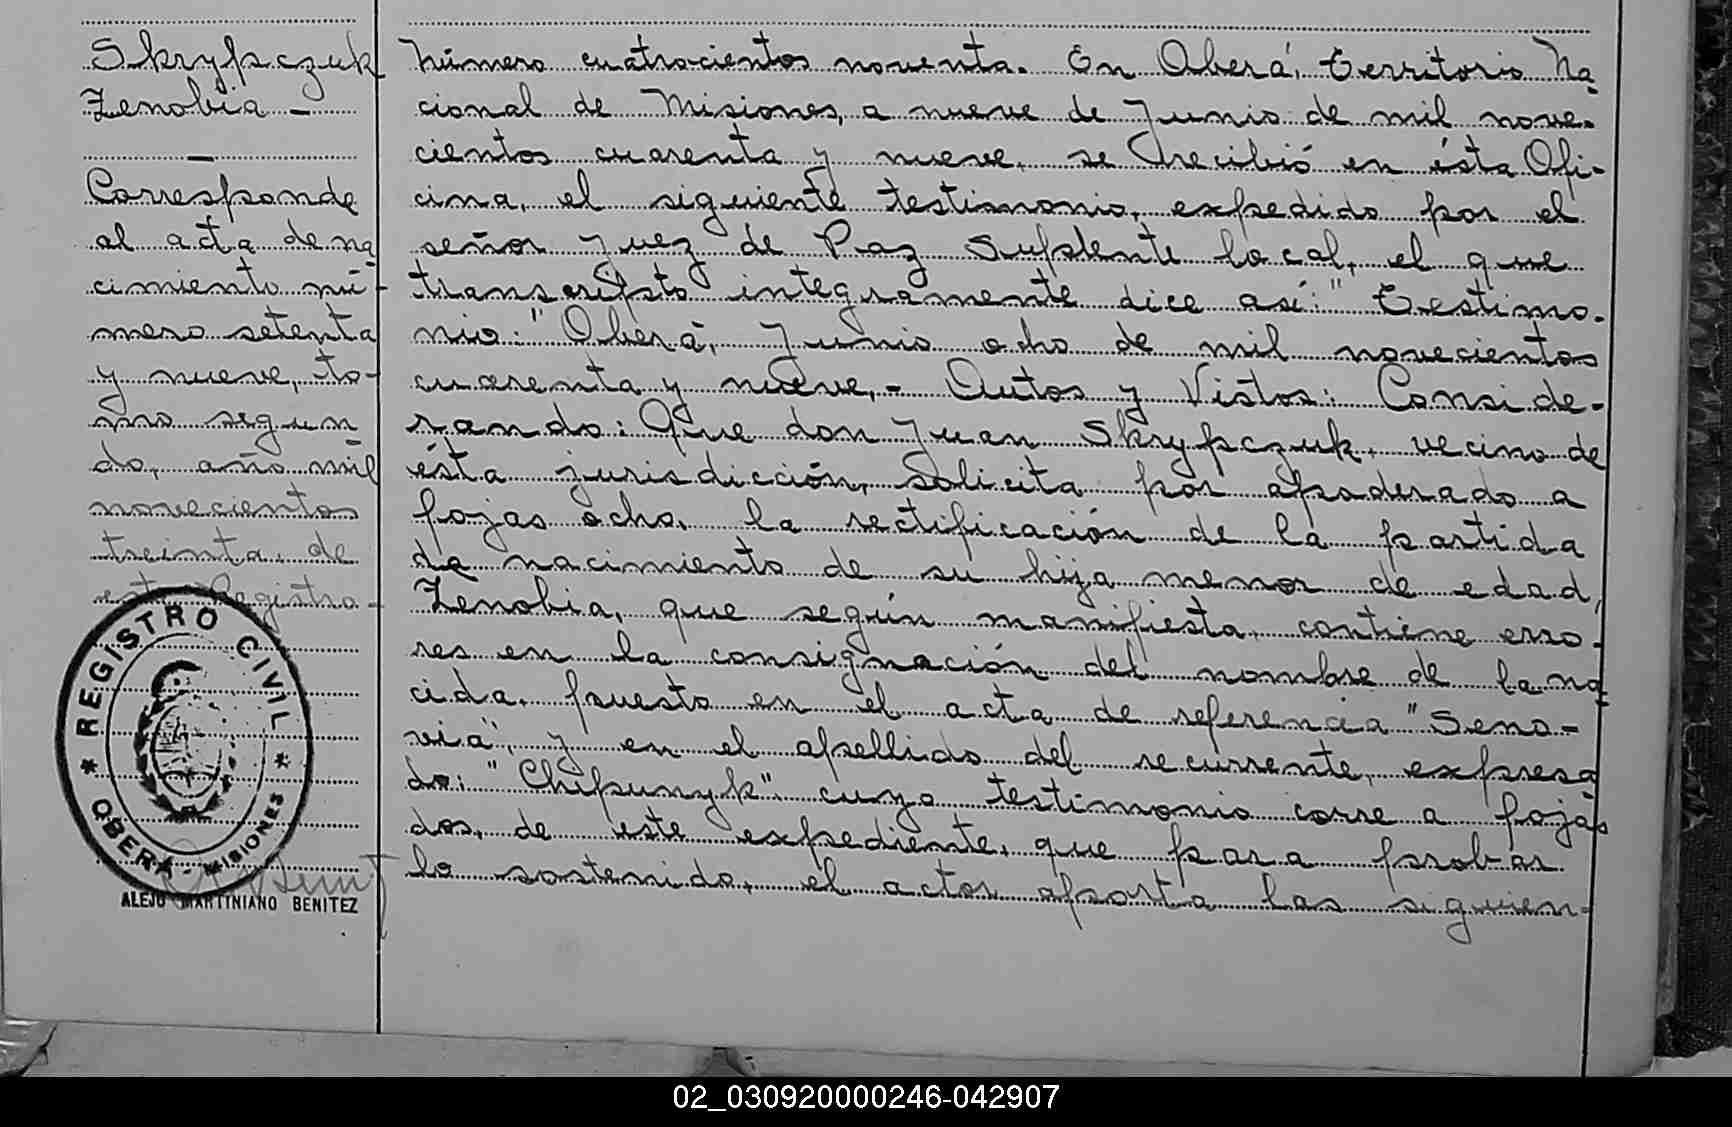 Skrypczuk
Zenobia –
–
Corresponde
al acta de na
cimiento nú-
mero setenta
y nueve, to-
mo segun
do, año mil
novecientos
treinta, de
este Registro-
REGISTRO CIVIL
* OBERA - MISIONES *
ALEJO MARTINIANO BENITEZ
Número cuatrocientos noventa. En Oberá, Territorio Na
cional de Misiones, a nueve de Junio de mil nove-
cientos cuarenta y nueve, se recibió en ésta Ofi-
cina, el siguiente testimonio, expedido por el
señor Juez de Paz Suplente local, el que
transcripto integramente dice así: "Testimo-
nio:" Oberá, Junio ocho de mil novecientos
cuarenta y nueve,- Autos y Vistos: Conside-
rando: Que don Juan Skrypczuk, vecino de
ésta jurisdicción, solicita por apoderado a
fojas ocho, la rectificación de la partida
de nacimiento de su hija menor de edad,
Zenobia, que según manifiesta, contiene erro-
res en la consignación del nombre de la na-
cida, puesto en el acta de referencia "Seno-
via", y en el apellido del recurrente, expresa
do: "Chipunyk" cuyo testimonio corre a fojas
dos, de este expediente, que para probar
lo sostenido, el actor aporta las siguien-
02_030920000246-042907